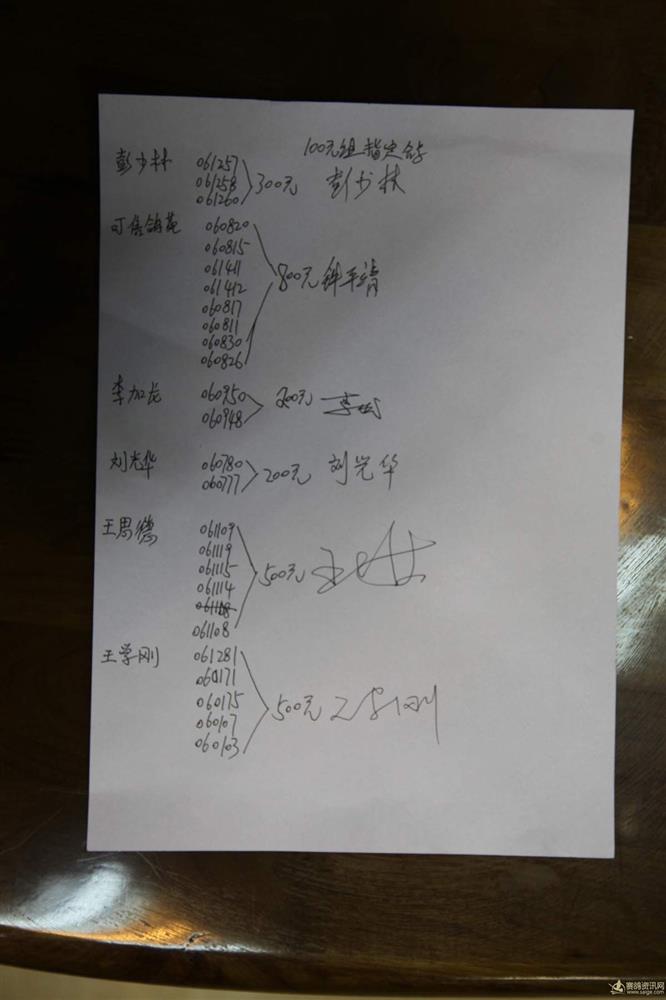 100元组指定鸽
彭少林 061257
061258 300元 彭少林
061260
可售鸽苑 060820
060815
061411
061412 800元
060817
060811
060830
060826
李加龙 060950 200元
060948
刘光华 060780 200元 刘光华
060777
王思德 061109
061119
061115 500元
061114
061108
王学刚 061281
060171
060175 500元 王学刚
060107
060103
赛鸽资讯网
www.saige.com